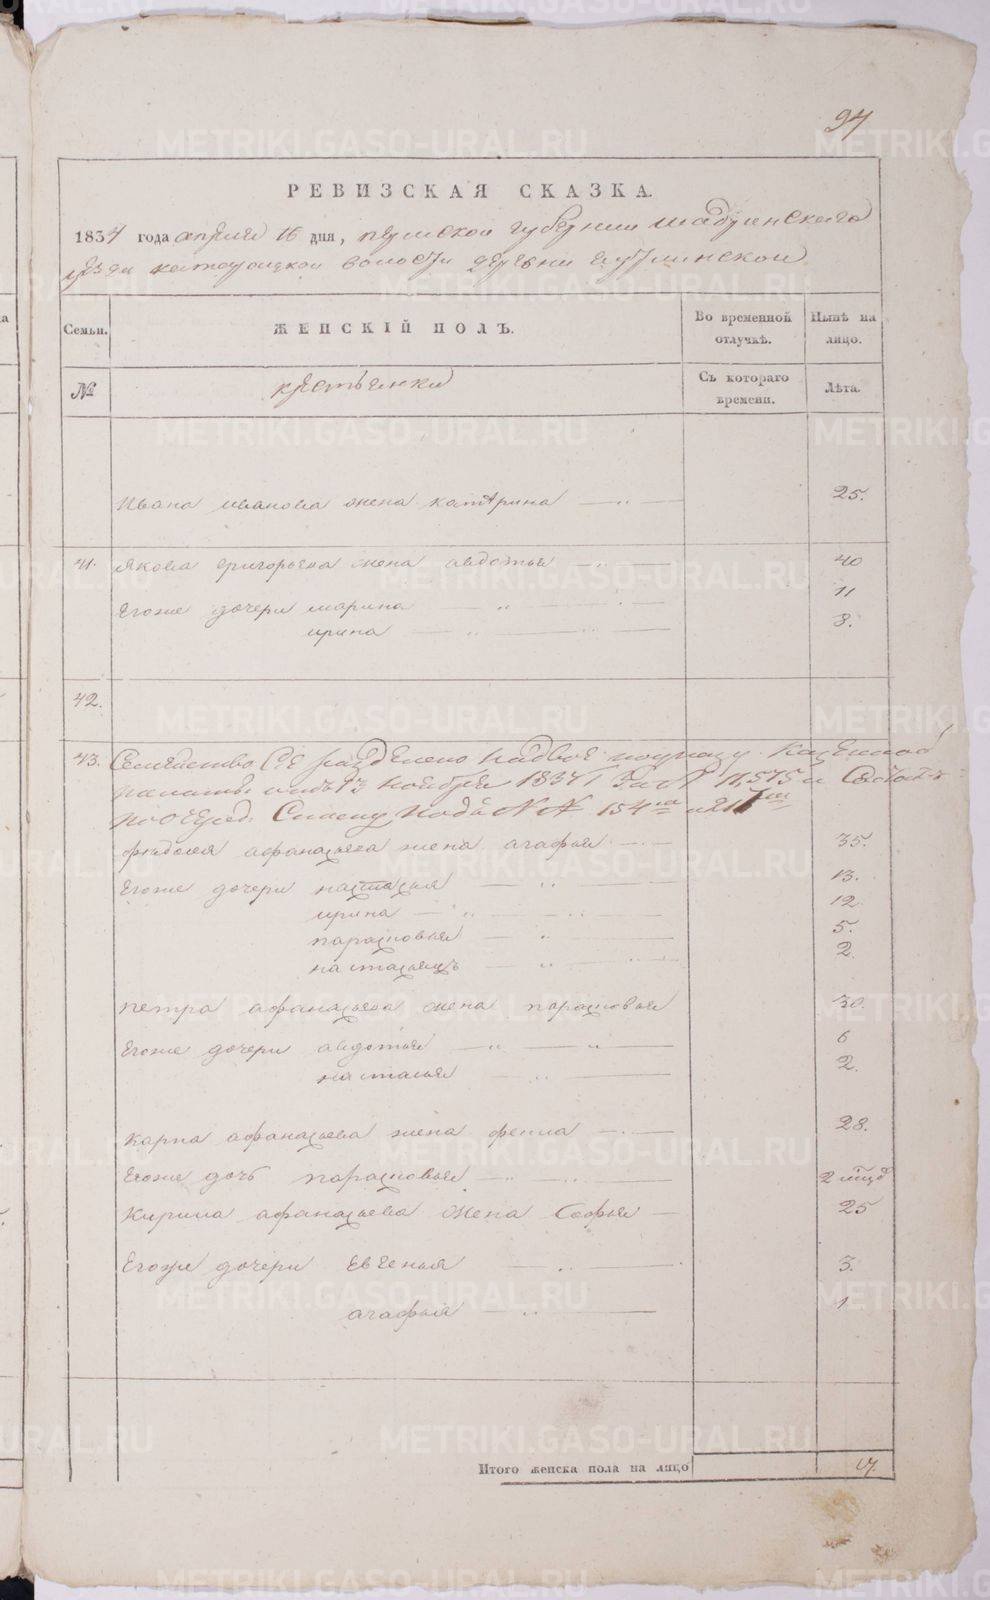 94
РЕВИЗСКАЯ СКАЗКА.
1834 года апреля 16 дня, пермской губернии шадринскаго
уезда волости деревни
Семьи.
ЖЕНСКІЙ ПОЛЪ.
Во временной отлучкѣ.
Нынѣ на лицо.
№
крестьянки
Съ котораго времени.
Лѣта.
Ивана иванова жена катерина 25.
41. Якова григорьева жена авдотья 40
Егоже дочери марина 11
ирина 8.
42.
43. Семейство Сіе раздѣлено надвое поуказу Казенной
палаты отъ ноября 1834 г за № 11,575 и Состоитъ
по очеред. Списку подъ №№ 154м и 211м
федосея афанасьева жена агафья 35.
Егоже дочери настасья 13.
ирина 12
парасковья 5.
2.
петра афанасьева жена парасковья 30.
Егоже дочери авдотья 6
наталья 2.
Карпа афанасьева жена фекла 28.
Егоже дочь парасковья 2 мѣсяц
Кирила афанасьева жена Софья 25
Егоже дочери Евгенья 3.
агафья 1
Итого женска пола на лицо 17.
METRIKI.GASO-URAL.RU